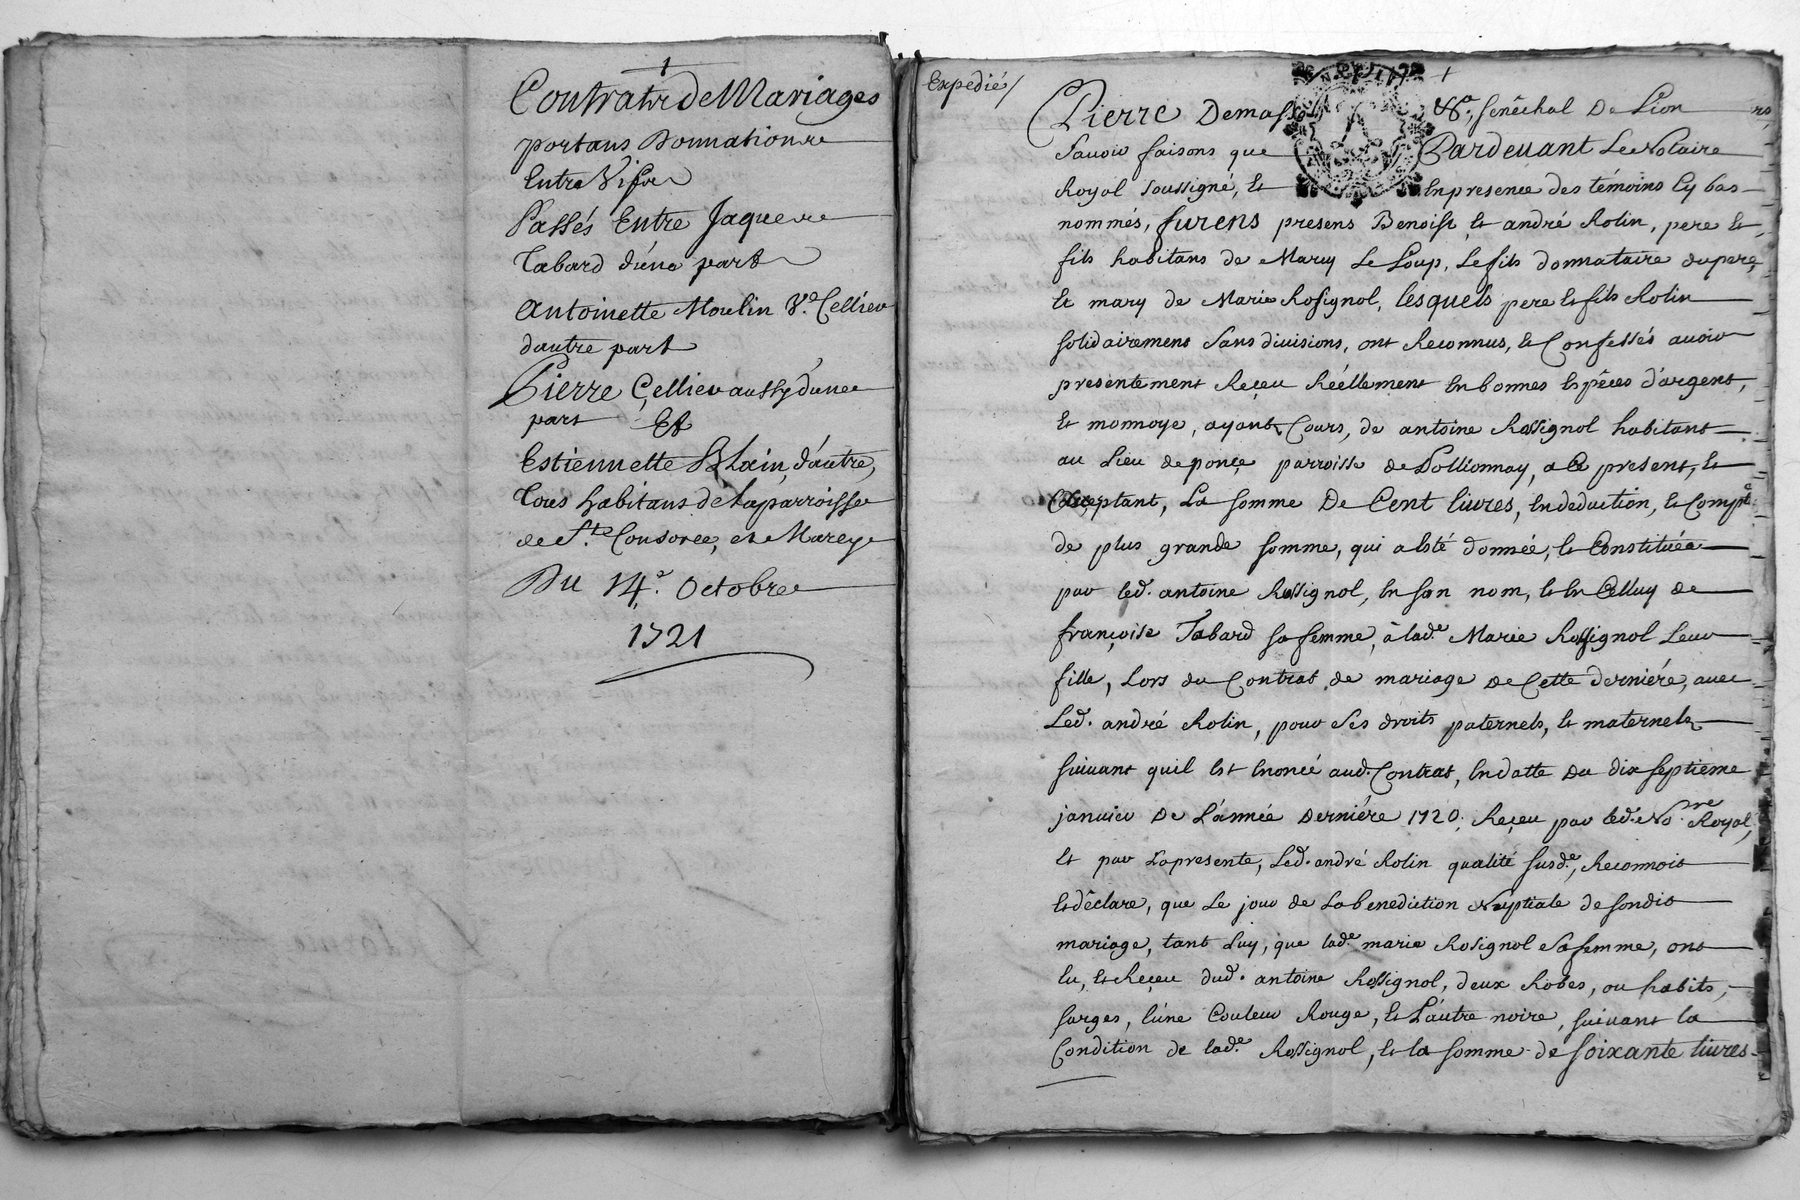 Contrat de Mariages
portans Donnation
Entre Vifs
Passés Entre Jaque
Tabard d'une part
Antoinette Moulin V.e Cellier
d'autre part
Pierre Cellier aussy d'une
part Et
Estiennette Blain, d'autre,
Tous habitans de la parroisse
de S.te Consorce, et Marcy
Du 14.e Octobre
1721
Expedié/
Pierre Demass &a. senêchal De Lion
Savoir faisons que Pardevant Le Notaire
Royal soussigné, Et En presence des témoins Cy bas
nommés, furens presens Benoist et andré Rolin, pere et
fils habitans de Marcy Le Loup, Le fils donnataire du pere,
et mary de Marie Rosignol, lesquels pere et fils Rolin
solidairement Sans divisions, ont Reconnus, et Confessés avoir
presentement Reçeu Réellement En bonnes Espêces d'argent,
et monnoye, ayant Cours, de antoine Rossignol habitant
au Lieu de ponce parroisse de Pollionnay, a Ce present, et
acceptant, La somme De Cent livres, En deduction, et Compte
de plus grande somme, qui a Esté donnée, et Constituée
par led. antoine Rossignol, En son nom, et En Celluy de
françoise Tabard sa femme, à lad.e Marie Rossignol Leur
fille, Lors du Contrat de mariage de Cette derniére, avec
Led. andré Rolin, pour Ses droits paternels, et maternels
suivant quil Est Enoncé aud. Contrat, En datte du dix septiéme
janvier De L'année Derniére 1720, Reçeu par led. No.re Royal,
et par La presente, Led. andré Rolin qualité susd.e, Reconnoit
et dêclare, que Le jour de La benediction Nuptiale de sondit
mariage, tant Luy, que lad.e marie Rosignol Sa femme, ont
Eu, et Reçeu dud. antoine Rossignol, deux Robes, ou habits,
sarges, l'une Couleur Rouge, et L'autre noire, suivant la
Condition de lad.e Rossignol, et la somme de soixante livres